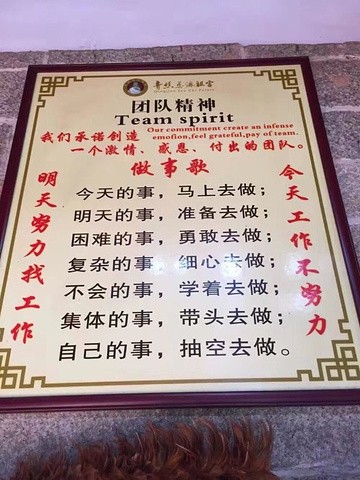 团队精神
Team spirit
我们承诺创造
Our commotion create an infense
emostion,feel grateful,pay of team.
一个激情、感恩、付出的团队。
做事歌
今天工作不努力
明天努力找工作
今天的事，马上去做；
明天的事，准备去做；
困难的事，勇敢去做；
复杂的事，细心去做；
不会的事，学着去做；
集体的事，带头去做；
自己的事，抽空去做。